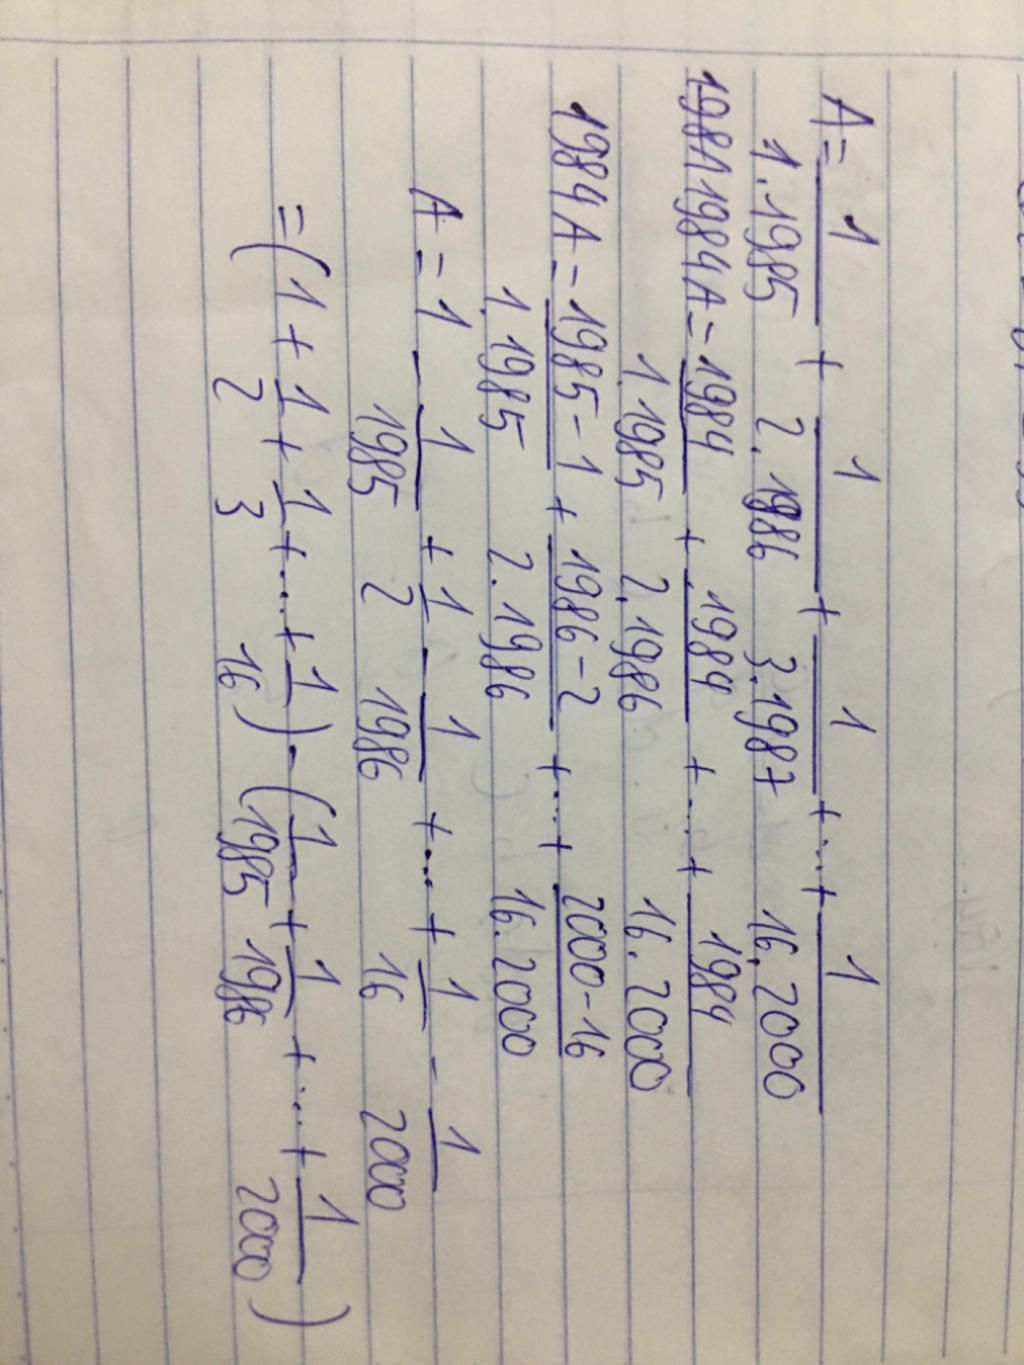 A = 1/1.1985 + 1/2.1986 + 1/3.1987 + ... + 1/16.2000
1984A = 1984/1.1985 + 1984/2.1986 + ... + 1984/16.2000
1984A = 1985-1/1.1985 + 1986-2/2.1986 + ... + 2000-16/16.2000
A = 1 - 1/1985 + 1/2 - 1/1986 + ... + 1/16 - 1/2000
= (1 + 1/2 + 1/3 + ... + 1/16) - (1/1985 + 1/1986 + ... + 1/2000)